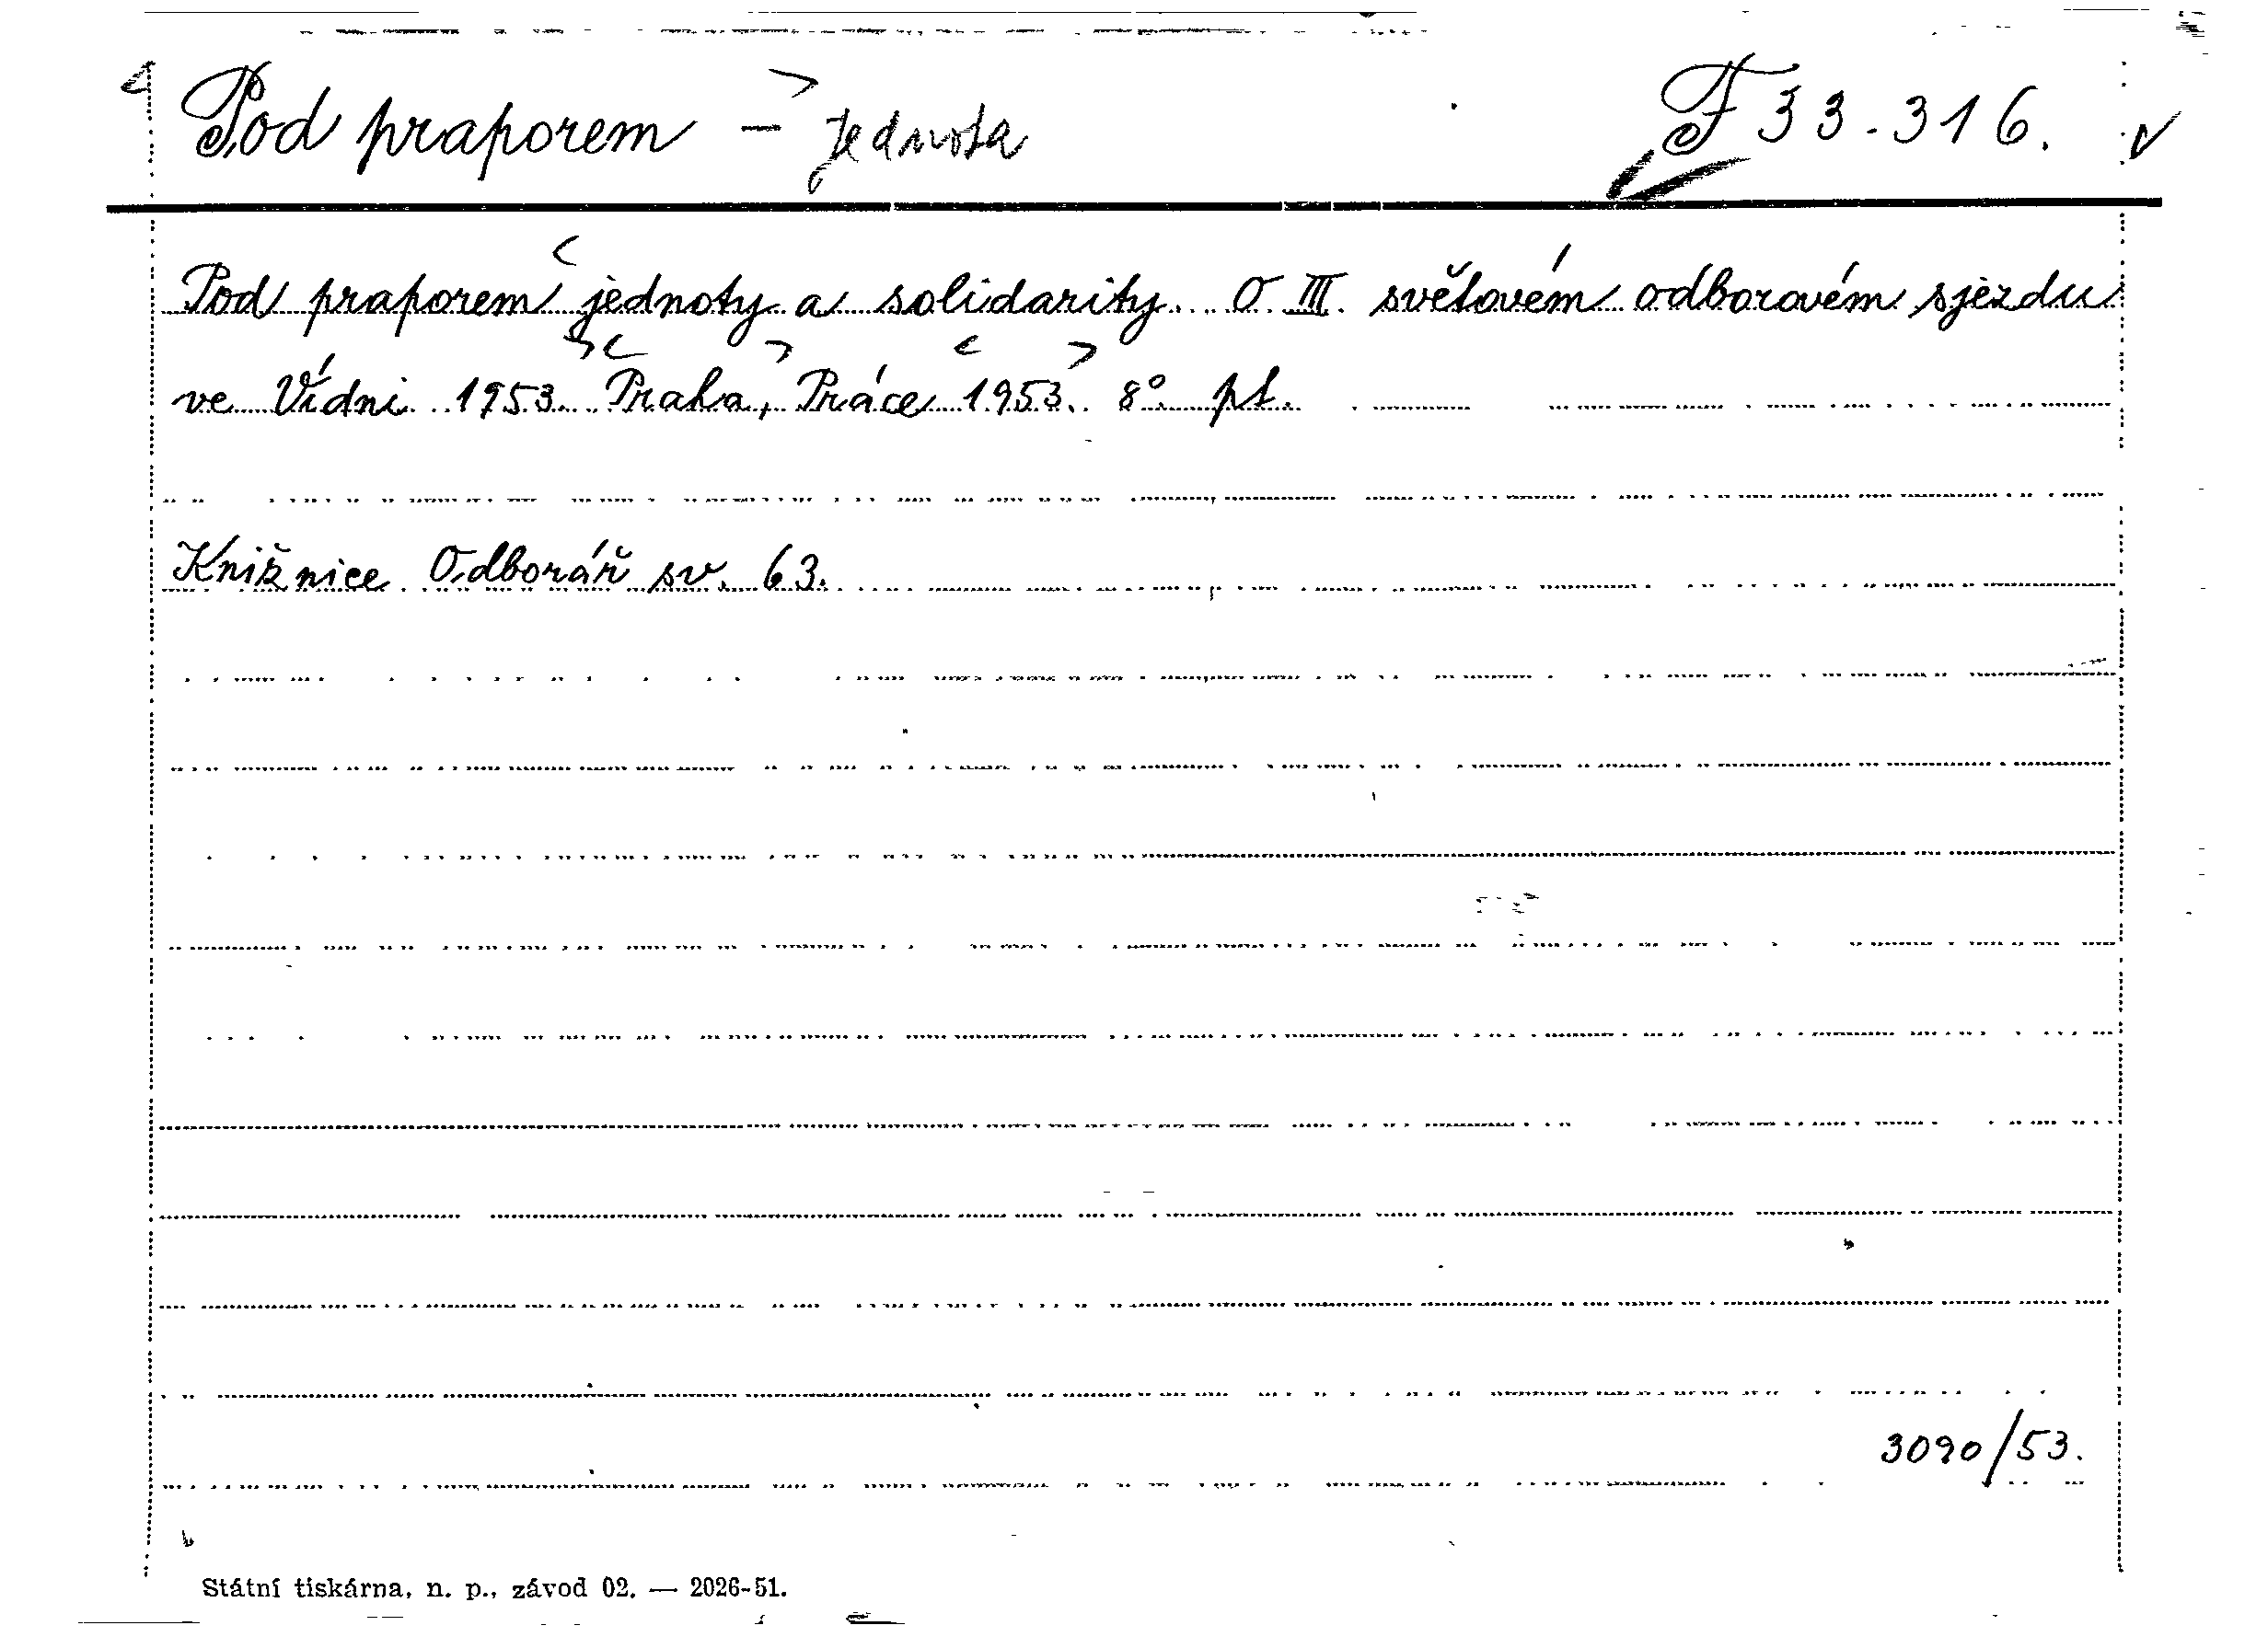 Pod praporem - jednota F 33.316.
Pod praporem jednoty a solidarity. O III. světovém odborovém sjezdu
ve Vídni 1953. Praha, Práce 1953. 8° pt.
Knižnice Odborář sv. 63.
3090/53.
Státní tiskárna, n. p., závod 02. — 2026-51.